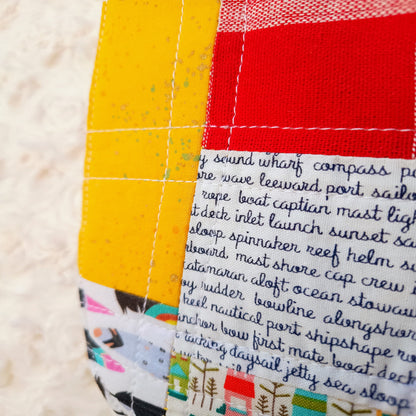 sound wharf compass
wave leeward port
rope boat captian mast
deck inlet launch sunset
sloop spinnaker reef helm
mast shore cap crew
catamaran aloft ocean
rudder bowline
keel nautical port shipshape
bow first mate boat deck
tacking daysail jetty sea sloop